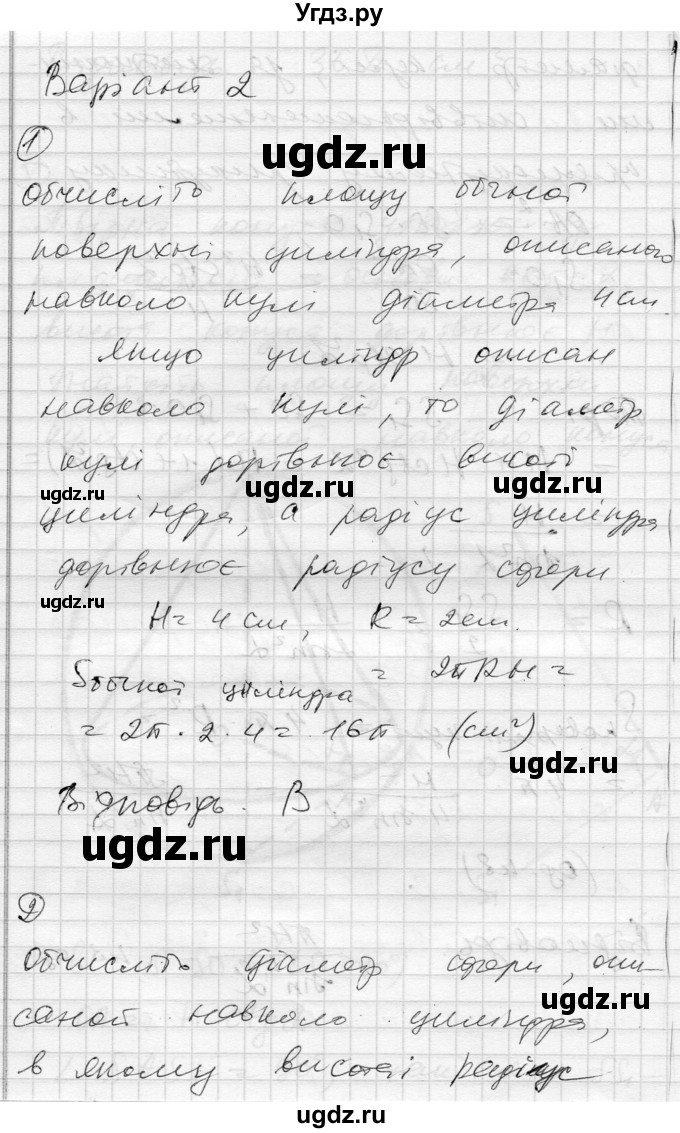 Угдз.ру
Варіант 2
1
обчисліть площу бічної
поверхні циліндра, описаного
навколо кулі діаметра 4 см.
якщо циліндр описан
навколо кулі, то діаметр
кулі дорівнює висоті
циліндра, а радіус циліндра
дорівнює радіусу сфери.
H = 4 см, R = 2 см.
Sбічної циліндра = 2πRH =
= 2π · 2 · 4 = 16π (см²)
Відповідь. В
2
обчисліть діаметр сфери, опи-
саной навколо циліндра,
в якому висота і радіус
ugdz.ru
ugdz.ru
ugdz.ru
ugdz.ru
ugdz.ru
ugdz.ru
ugdz.ru
ugdz.ru
ugdz.ru
ugdz.ru
ugdz.ru